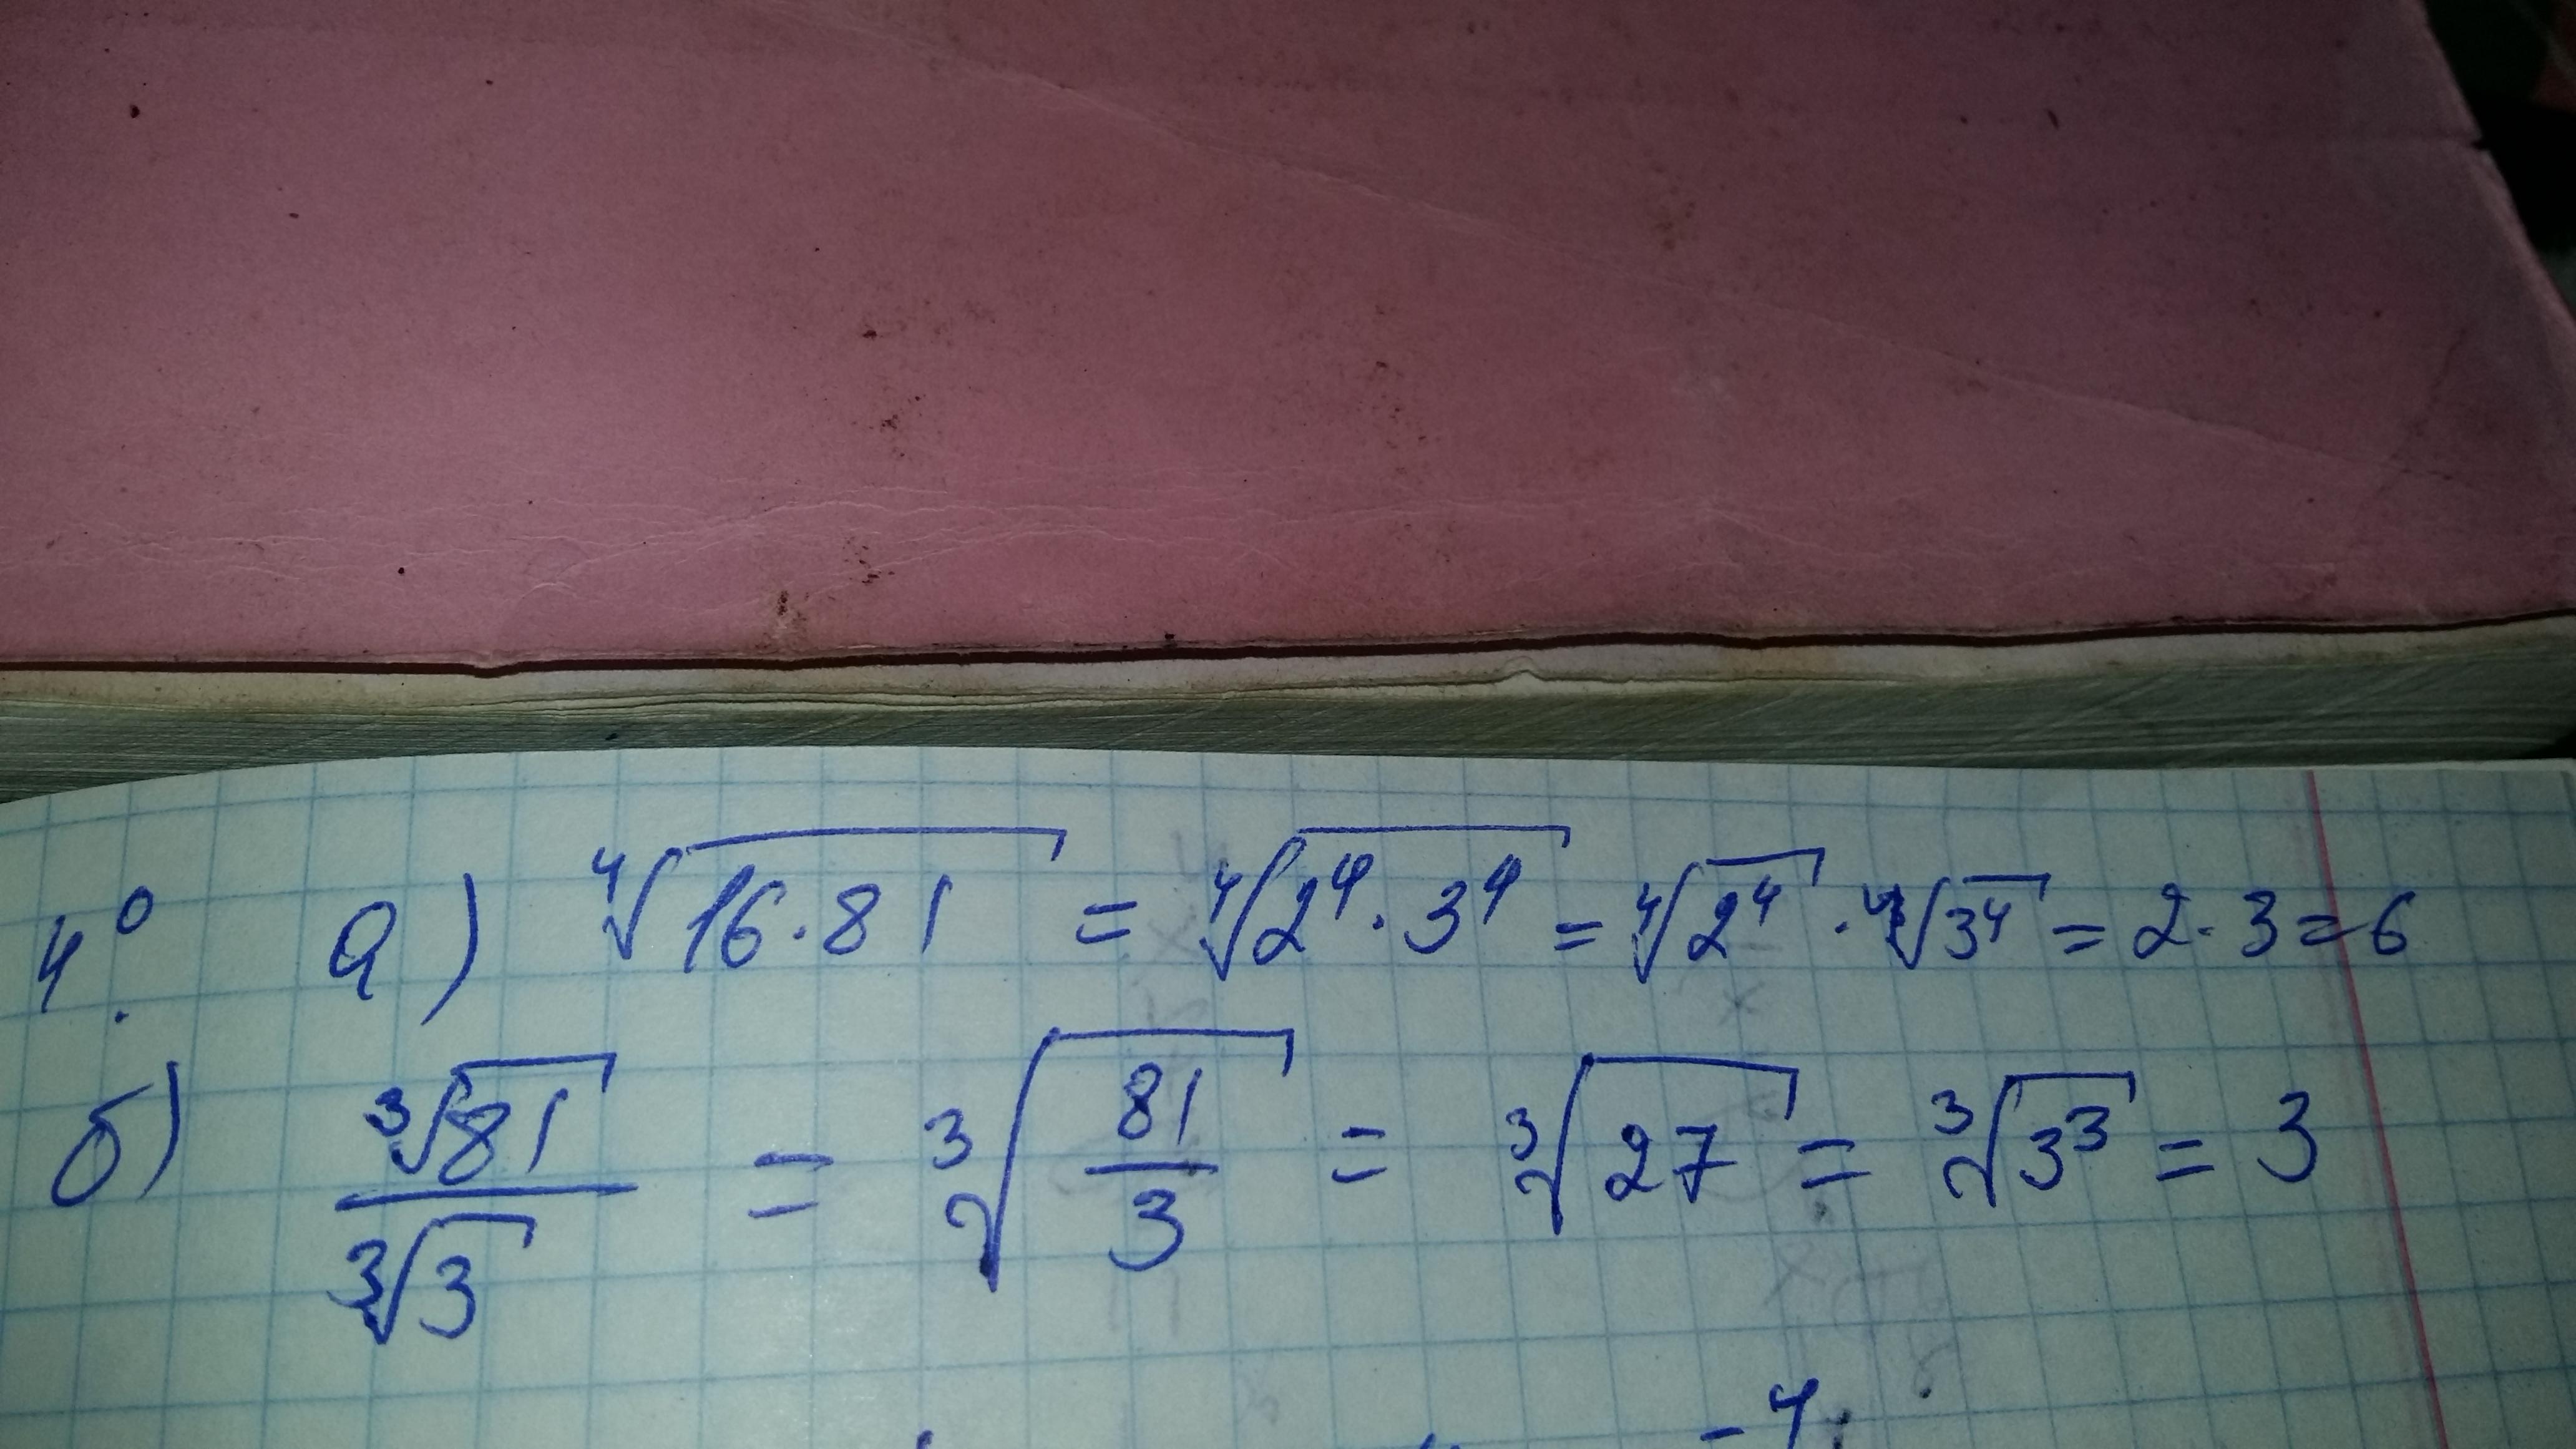 4⁰. a) ⁴√(16·81) = ⁴√(2⁴·3⁴) = ⁴√(2⁴) · ⁴√(3⁴) = 2·3=6
б) ³√81 / ³√3 = ³√(81/3) = ³√27 = ³√(3³) = 3